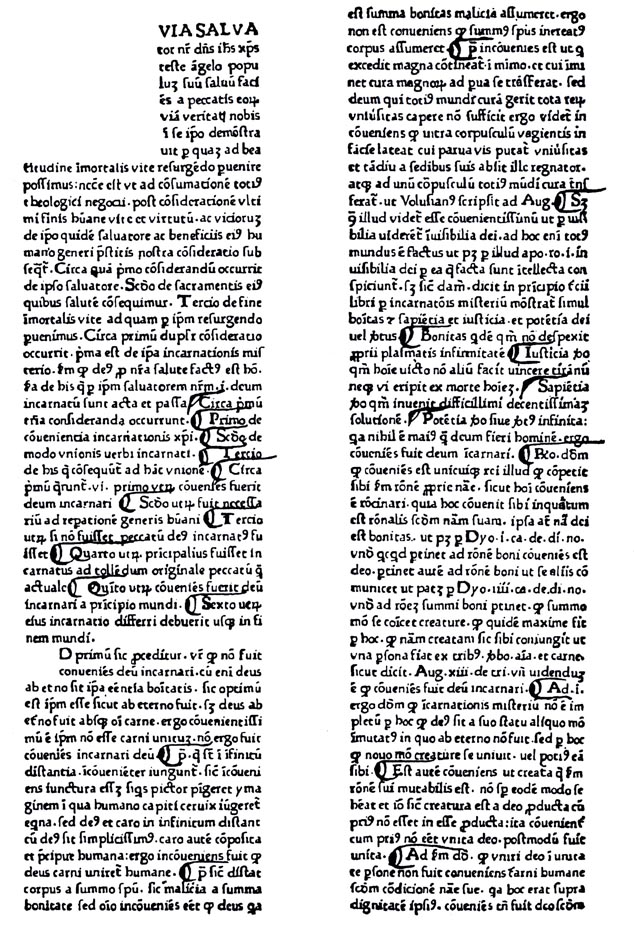 VIA SALVA
tor nr̄ dn̄s ih̄s xp̄s
teste āgelo popu
luꝫ suū saluū faci
ēs a peccatis eoꝝ
viā veritatꝭ nobis
ī se ip̄o demōstra
uit ꝑ quaꝫ ad bea
titudinē īmortalis vite resurgēdo ꝑuenire
possimus: nccē est vt ad cōsumationē totiꝰ
theologici negocii. post cōsiderationē vlti
mi finis hūane vite et virtutū. ac vicioruꝫ
de ip̄o quidē saluatore ac beneficiis eiꝰ hu
mano generi p̄stitis nostra cōsideratio sub
seqt̄. Circa quā p̄mo cōsiderandū occurrit
de ip̄so saluatore. Scd̄o de sacramentis eiꝰ
quibus salutē cōsequimur. Tercio de fine
īmortalis vite ad quam ꝑ ip̄m resurgendo
ꝑuenimus. Circa primū duplꝛ cōsideratio
occurrit. p̄ma est de ip̄a incarnationis mis
terio. fm̄ ꝙ deꝰ ꝓ nr̄a salute factꝰ est hō.
s̄a de his q̄ ꝑ ip̄m saluatorem nr̄m .i. deum
incarnatū sunt acta et passa Circa p̄mū
tria consideranda occurrunt. Primo de
cōuenientia incarnationis xp̄i. Scd̄o de
modo vnionis uerbi incarnati. Tercio
de his q̄ cōsequūt ad hāc vnionē. Circa
p̄mū q̄runt̄ .vi. primo vtꝝ cōueniēs fuerit
deum incarnari Scd̄o utꝝ fuit necessa
riū ad reꝑationē generis hūani Tercio
utꝝ si nō fuisset peccatū deꝰ incarnatꝰ fu
isset Quarto utꝝ pricipalius fuisset in
carnatus ad tollēdum originale peccatū q̄
actuale Quīto utꝝ cōueniēs fuerit deū
incarnari a prīcipio mundi. Sexto utꝝ
eius incarnatio differri debuerit usqꝫ in fi
nem mundi.
D primū sic ꝓceditur. vr̄ ꝙ nō fuit
conueniēs deū incarnari. cū eni deus
ab eterno sit ip̄a eēntia boītatis. sic optimū
est ip̄m esse sicut ab eterno fuit. sꝫ deus ab
etn̄o fuit absqꝫ oī carne. ergo cōuenientissi
mū ē ip̄m nō esse carni unituꝫ. nō ergo fuit
cōueniēs incarnari deū p̄. q̄ st̄ ī īfinitū
distantia. īcōueniēter iungunt̄. sic īcōueni
ens iunctura esset siqs pictor pigeret yma
ginem ī qua humano capiti ceruix iūgeret
eqna. sed deꝰ et caro in infinitum distant
cū deꝰ sit simplicissimꝰ. caro autē cōposita
et p̄cipue humana: ergo incōueniens fuit ꝙ
deus carni uniret̄ humane. p̄ sic distat
corpus a summo spū. sic malicia a summa
bonitate sed oīo incōueniēs eēt ꝙ deus qa
est summa bonitas maliciā assumeret. ergo
non est conueniens ꝙ summꝰ spūs increatꝰ
corpus assumeret p̄ incōueniēs est ut q̄
excedit magna cōtineat̄ ī mimo. et cui īmi
net cura magnoꝝ ad ꝑua se trāsferat. sed
deum qui totiꝰ mundi curā gerit tota reꝝ
vniūsitas capere nō sufficit ergo videt̄ in
cōueniens ꝙ intra corpusculū vagientis in
fācie lateat cui parua vis putat̄ vniūsitas
et tādiu a sedibus suis absit ille regnator.
atqꝫ ad unū cōpusculū totiꝰ mūdi cura tn̄s
ferat̄. ut Volusianꝰ scripsit ad Aug. Sꝫ
ꝯ illud videt̄ esse cōuenientissimū ut ꝑ uisi
bilia uideret̄ iuisibilia dei. ad hoc eni totꝰ
mundus ē factus ut pꝫ ꝑ illud apo. ro. i. in
uisibilia dei ꝑ ea q̄ facta sunt ītellecta con
spiciunt̄. sꝫ sic dam̄. dicit in prīcipio tcii
libri ꝑ incarnatōis misteriū mōstrat̄ simul
boītas ⁊ sapiētia et iusticia. et potētia dei
uel ꝟtus Bonitas qdē qm̄ nō despexit
ꝓprii plasmatis infirmitatē Iusticia ꝟo
qm̄ hoīe uicto nō aliū facit uincere tirānū
neqꝫ vi eripit ex morte hoīeꝫ. Sapiētia
ꝟo qm̄ inuenit difficillimi decentissimaꝫ
solutionē. Potētia ꝟo siue ꝟtꝰ infinita:
qa nihil ē maiꝰ q̄ deum fieri hominē. ergo
cōueniēs fuit deum īcarnari. Rn̄o. dōm
ꝙ cōueniēs est unicuiqꝫ rei illud ꝙ cōpetit
sibi fm̄ rōnē ꝓprie nāe. sicut hoī cōueniens
ē rōcinari. quia hoc cōuenit sibi inquātum
est rōnalis scd̄m nām suam. ipsa at̄ nā dei
est bonitas. ut pꝫ ꝑ Dyo. i. ca. de. di. no.
vnō qcqd ptinet ad rōnē boni cōueniēs est
deo. ptinet autē ad rōnē boni ut se aliis cō
municet ut patꝫ ꝑ Dyo .iiii. ca. de. di. no.
vnō ad rōeꝫ summi boni ptinet. ꝙ summo
mō se cōicet creature. ꝙ quidē maxime fit
ꝑ hoc. ꝙ nām creatam sic sibi coniungit ut
vna ꝑsona fiat ex tribꝰ. ꝟbo. aīa. et carne.
sicut dicit. Aug. xiii. de tri. vn̄ uidenduꝫ
ē ꝙ cōueniēs fuit deū incarnari. Ad .i.
ergo dōm ꝙ īcarnationis misteriū nō ē im
pletū ꝑ hoc ꝙ deꝰ sit a suo statu aliquo mō
īmutatꝰ in quo ab eterno nō fuit. sed ꝑ hoc
ꝙ nouo mō creature se uniuit. uel potiꝰ eā
sibi. Est autē cōueniens ut creata q̄ fm̄
rōnē sui mutabilis est. nō sꝑ eodē modo se
hēat et iō sic creatura est a deo ꝓducta cū
priꝰ nō esset in esse ꝓducta: ita cōuenient̄
cum priꝰ nō eēt vnita deo. postmodū fuit
unita. Ad fm̄ dō. ꝙ vniri deo ī unita
te ꝑsone non fuit conueniens carni humane
scd̄m cōdicionē nāe sue. qa hoc erat supra
dignitatē ipsiꝰ. cōueniēs tn̄ fuit deo scd̄m